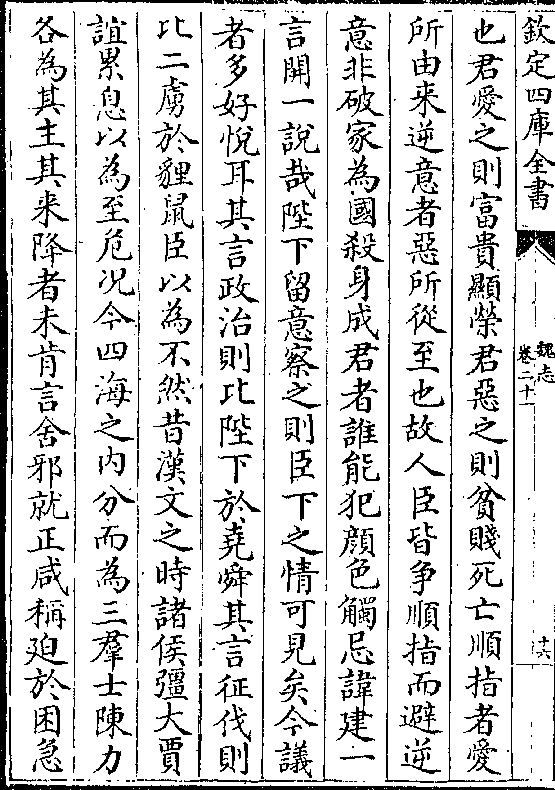 欽定四庫全書
魏志
卷二十一
十六
也君愛之則富貴顯榮君惡之則貧賤死亡順指者愛
所由来逆意者惡所從至也故人臣皆争順指而避逆
意非破家為國殺身成君者誰能犯顔色觸忌諱建一
言開一說哉陛下留意察之則臣下之情可見矣今議
者多好悅耳其言政治則比陛下於堯舜其言征伐則
比二虜於貍鼠臣以為不然昔漢文之時諸侯彊大賈
誼累息以為至危况今四海之内分而為三羣士陳力
各為其主其来降者未肯言舍邪就正咸稱廹於困急